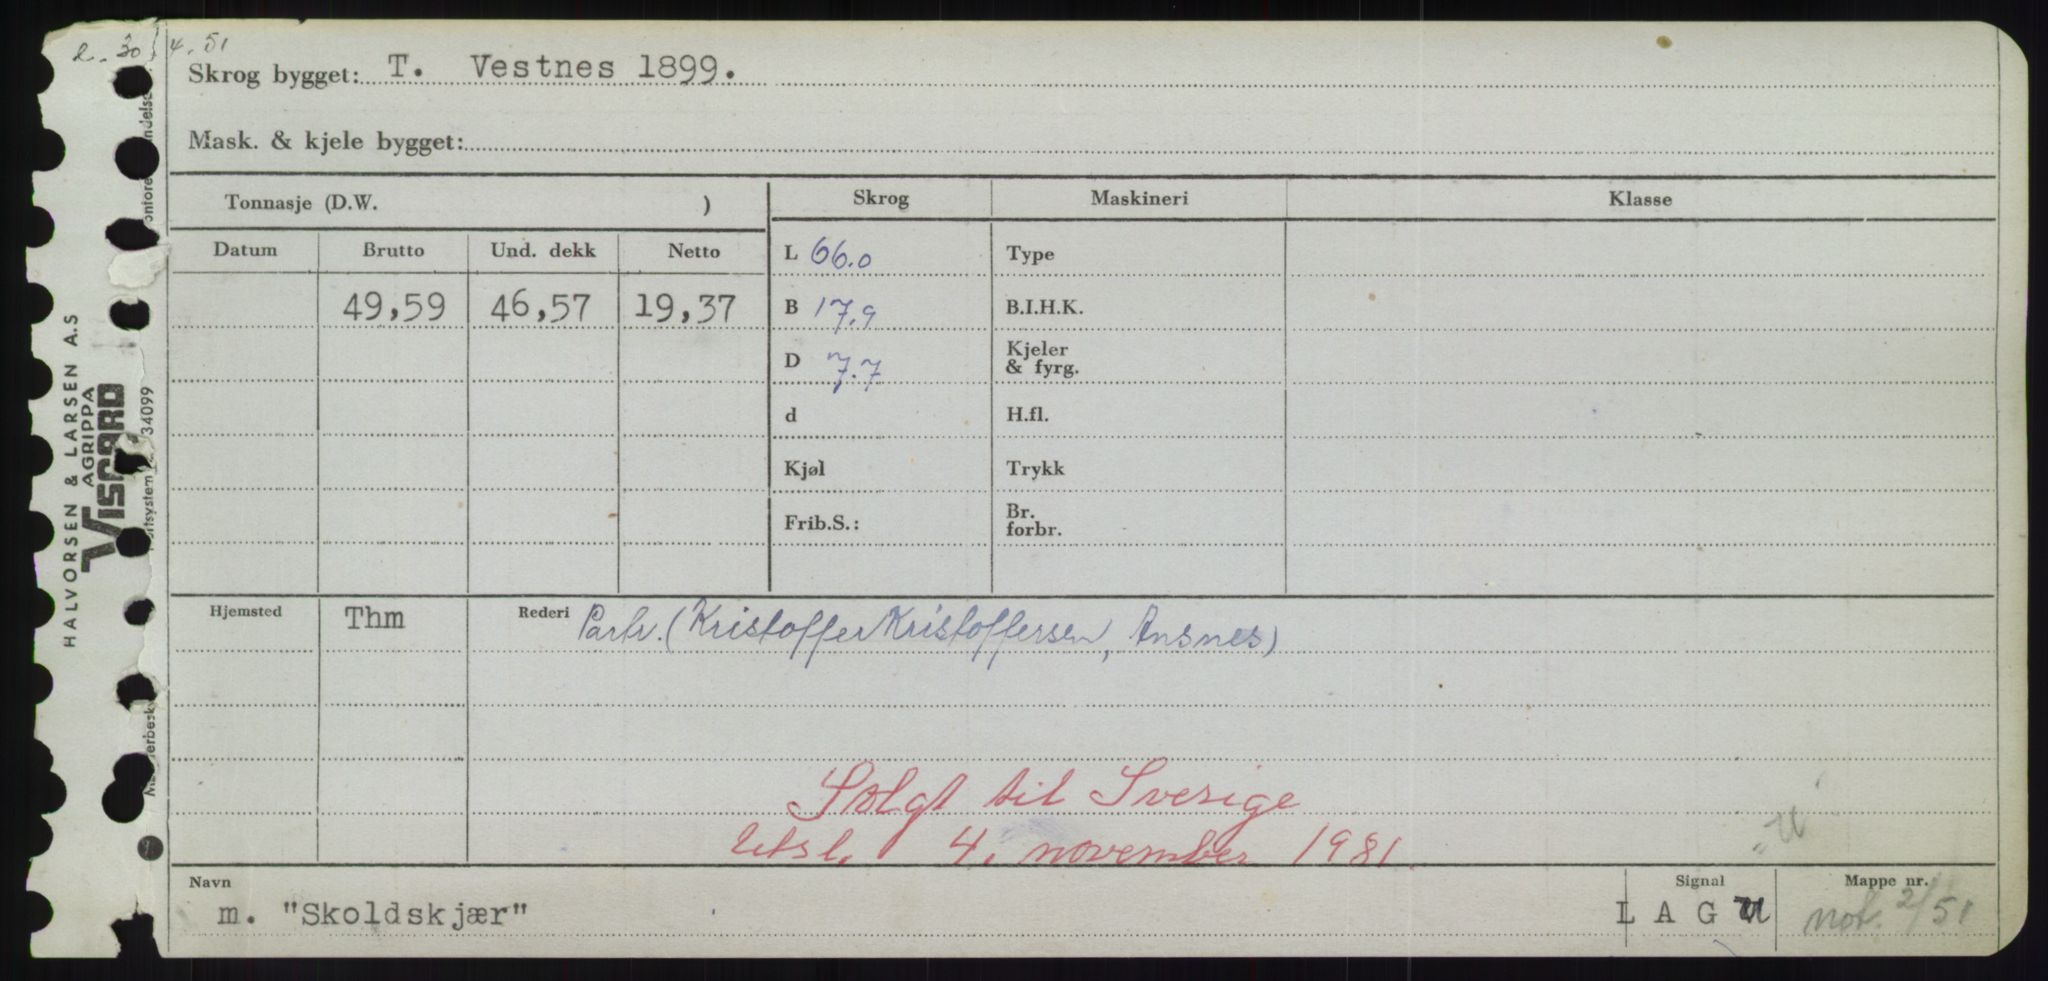 30/4.51
Skrog bygget: T. Vestnes 1899.
Mask. & kjele bygget:
Tonnasje (D.W. )
Skrog
Maskineri
Klasse
Datum Brutto Und. dekk Netto
49,59 46,57 19,37
L 66.0
B 17.9
D 7.7
d
Kjøl
Frib.S.:
Type
B.I.H.K.
Kjeler
& fyrg.
H.fl.
Trykk
Br.
forbr.
Hjemsted Thm Rederi Partr. (Kristoffer Kristoffersen, Ansnes)
Solgt til Sverige
Utsl. 4. november 1981
Navn
m. "Skoldskjær"
Signal
L A G U
Mappe nr.
not. 2/51
HALVORSEN & LARSEN A.S
AGRIPPA
VISCARD
34099